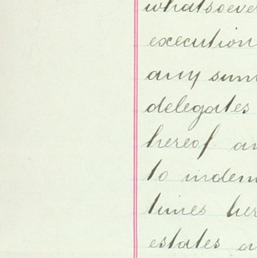 whatsoever
execution
any sum
delegates
hereof an
to indem
times her
estates a